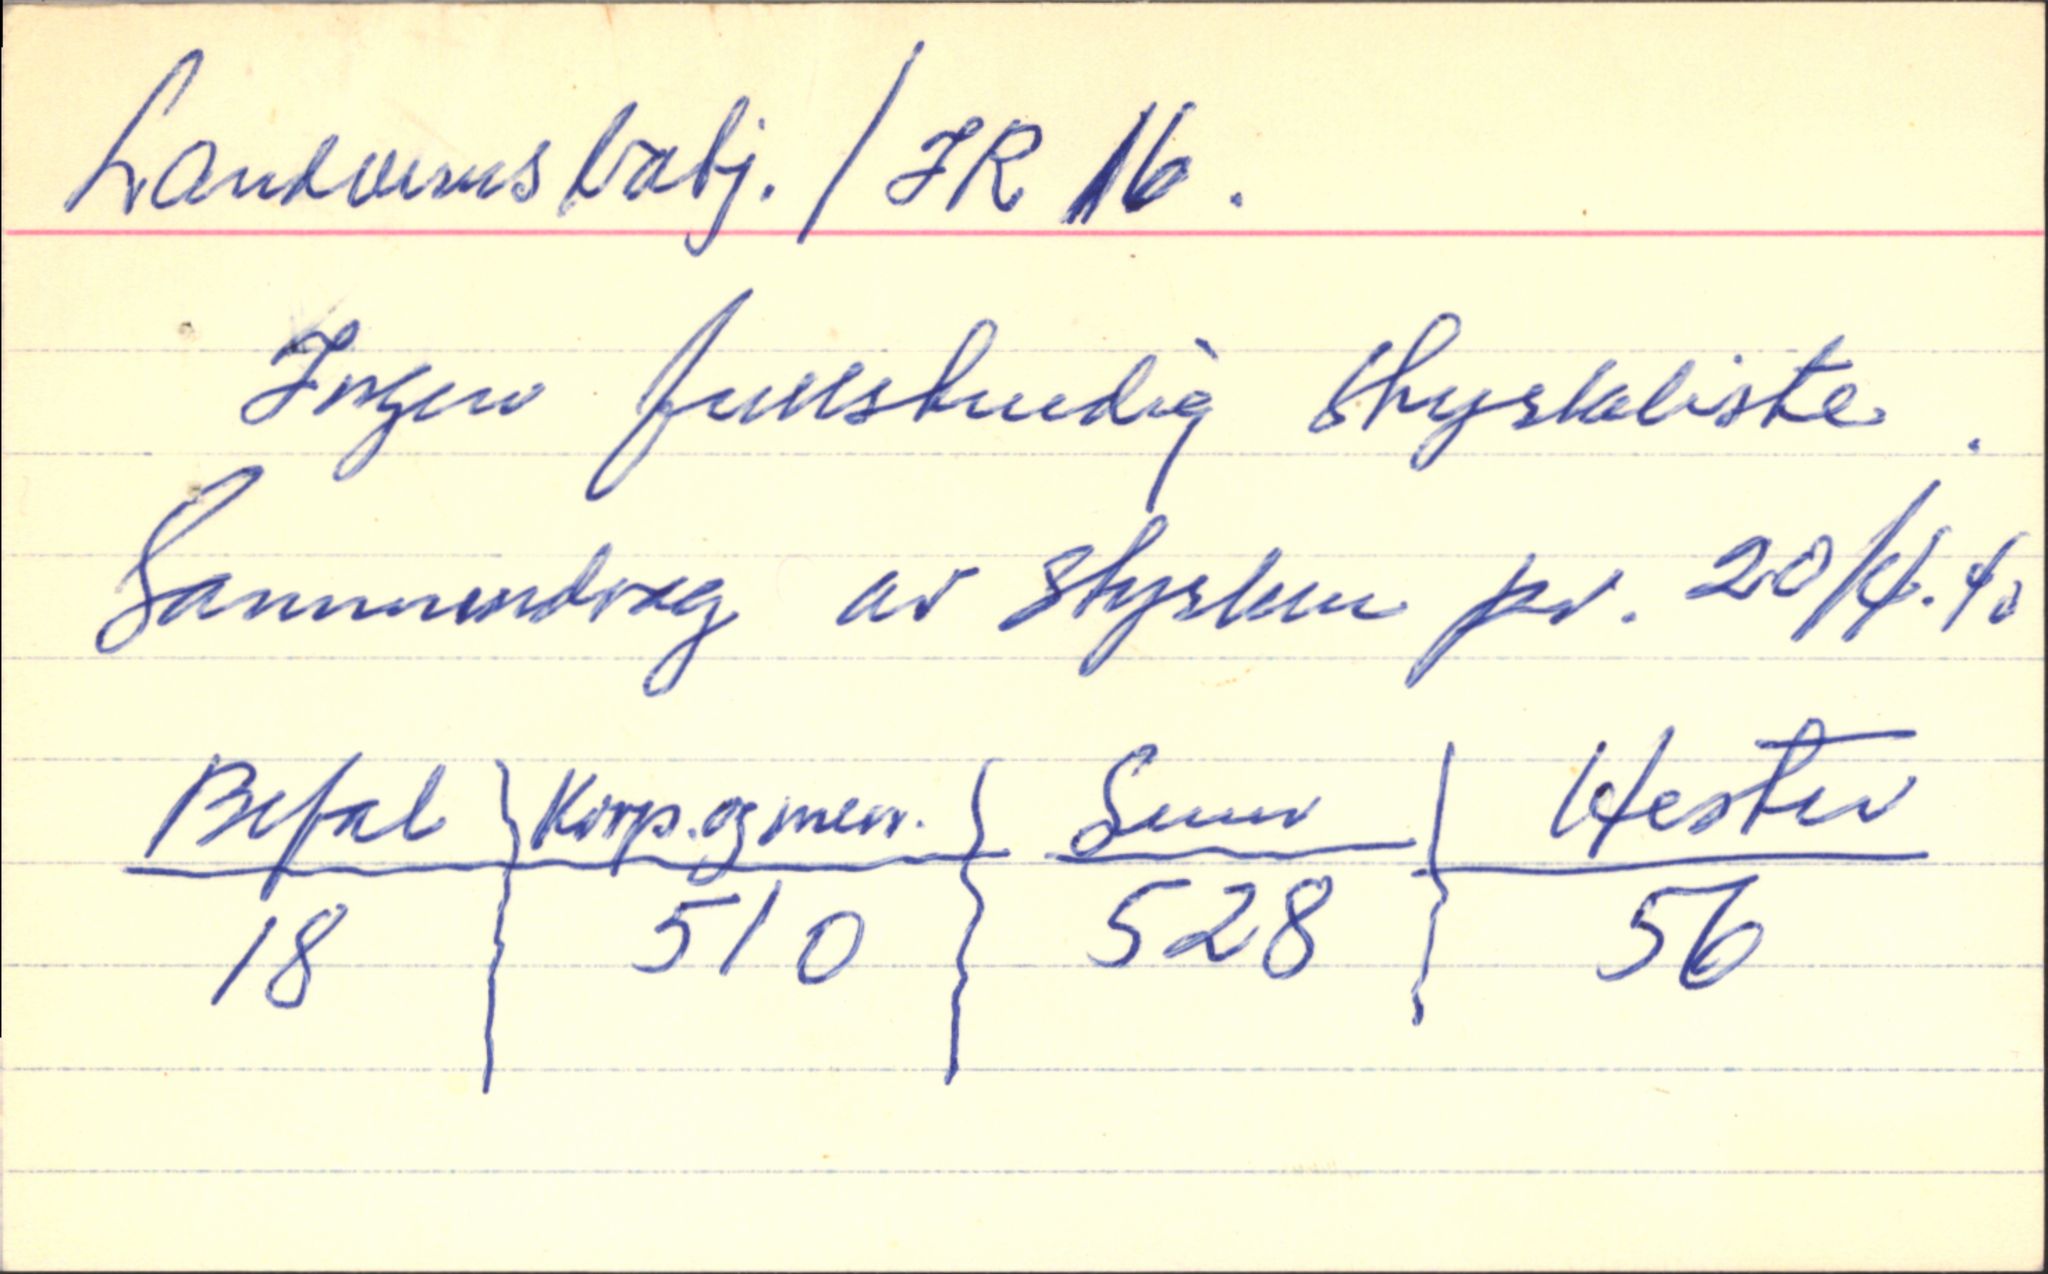 Landvernsbatj. / IR 16.
Ingen fullstendig styrkeliste.
Sammendrag av styrken pr. 20/4.40
Befal Korp. og men. Sum Hester
18 510 528 56